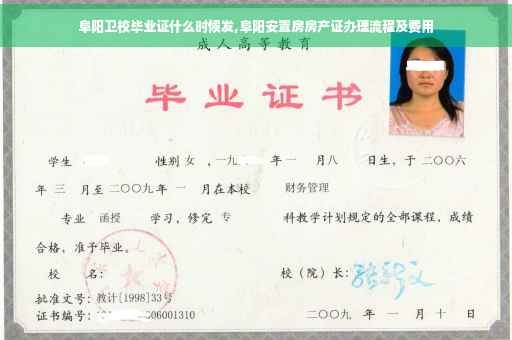 阜阳卫校毕业证什么时候发,阜阳安置房房产证办理流程及费用
成人高等教育
毕业证书
学生 性别 女 ,一九 年 一 月 八 日生，于 二〇〇六
年 三 月至 二〇〇九 年 一 月在本校 财务管理
专业 函授 学习，修完 专 科教学计划规定的全部课程，成绩
合格，准予毕业。
校 名： 校（院）长：
批准文号：教计[1998]33号
证书编号： 06001310 二〇〇九 年 一 月 十 日